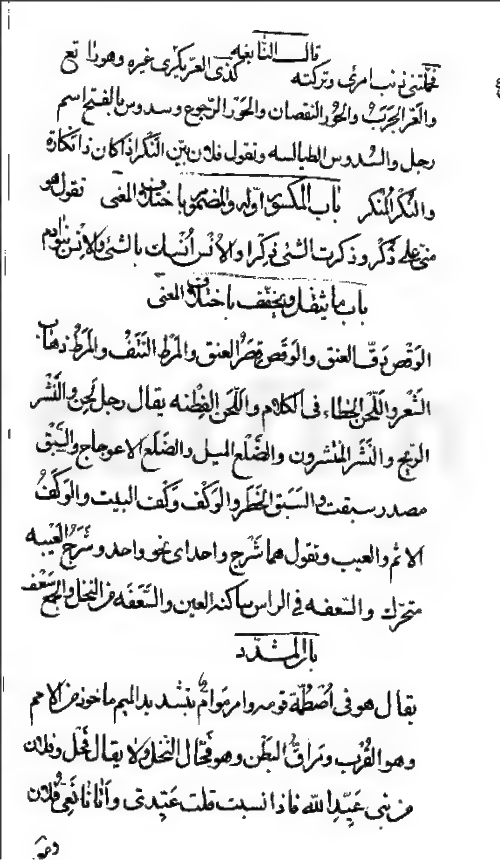 قال النابغه
فحملتني ذنب امرئ وتركته كذى العر يكوى غيره وهو راتع
والعر الجرب والحور النقصان والحور الرجوع وسدوس بالفتح اسم
رجل والسدوس الطيالسه وتقول فلان بين النكر اذا كان ذا نكارة
والنكر المنكر باب المكسور اوله والمضموم باختلاف المعنى تقول هو
منى على ذكر وذكرت الشئ ذكرا والانس انست بالشئ والانس بنو ادم
باب ما يثقل ويخفف باختلاف المعنى
الوقص دق العنق والوقص قصر العنق والمرط النتف والمرط ذهاب
الشعر واللحن الخطاء فى الكلام واللحن الفطنه يقال رجل لحن والنشر
الريح والنشر المنتشرون والضلع الميل والضلع الاعوجاج والسبق
مصدر سبقت والسبق الخطر والوكف وكف البيت والوكف
الاثم والعيب وتقول هما شرج واحد اى نحو واحد وشرج العيبه
متحرك والسعفه فى الراس ساكنة العين والسعفه من النخل والجمع سعف
باب المشدد
يقال هو فى اضطمة قومه وامر مؤام بتشديد الميم ماخوذ من الامم
وهو القرب ومراق البطن وهو فحال النحل ولا يقال فحل وفلان
من بني عيد الله فاذا نسبت قلت عيدى واتانا نعى فلان